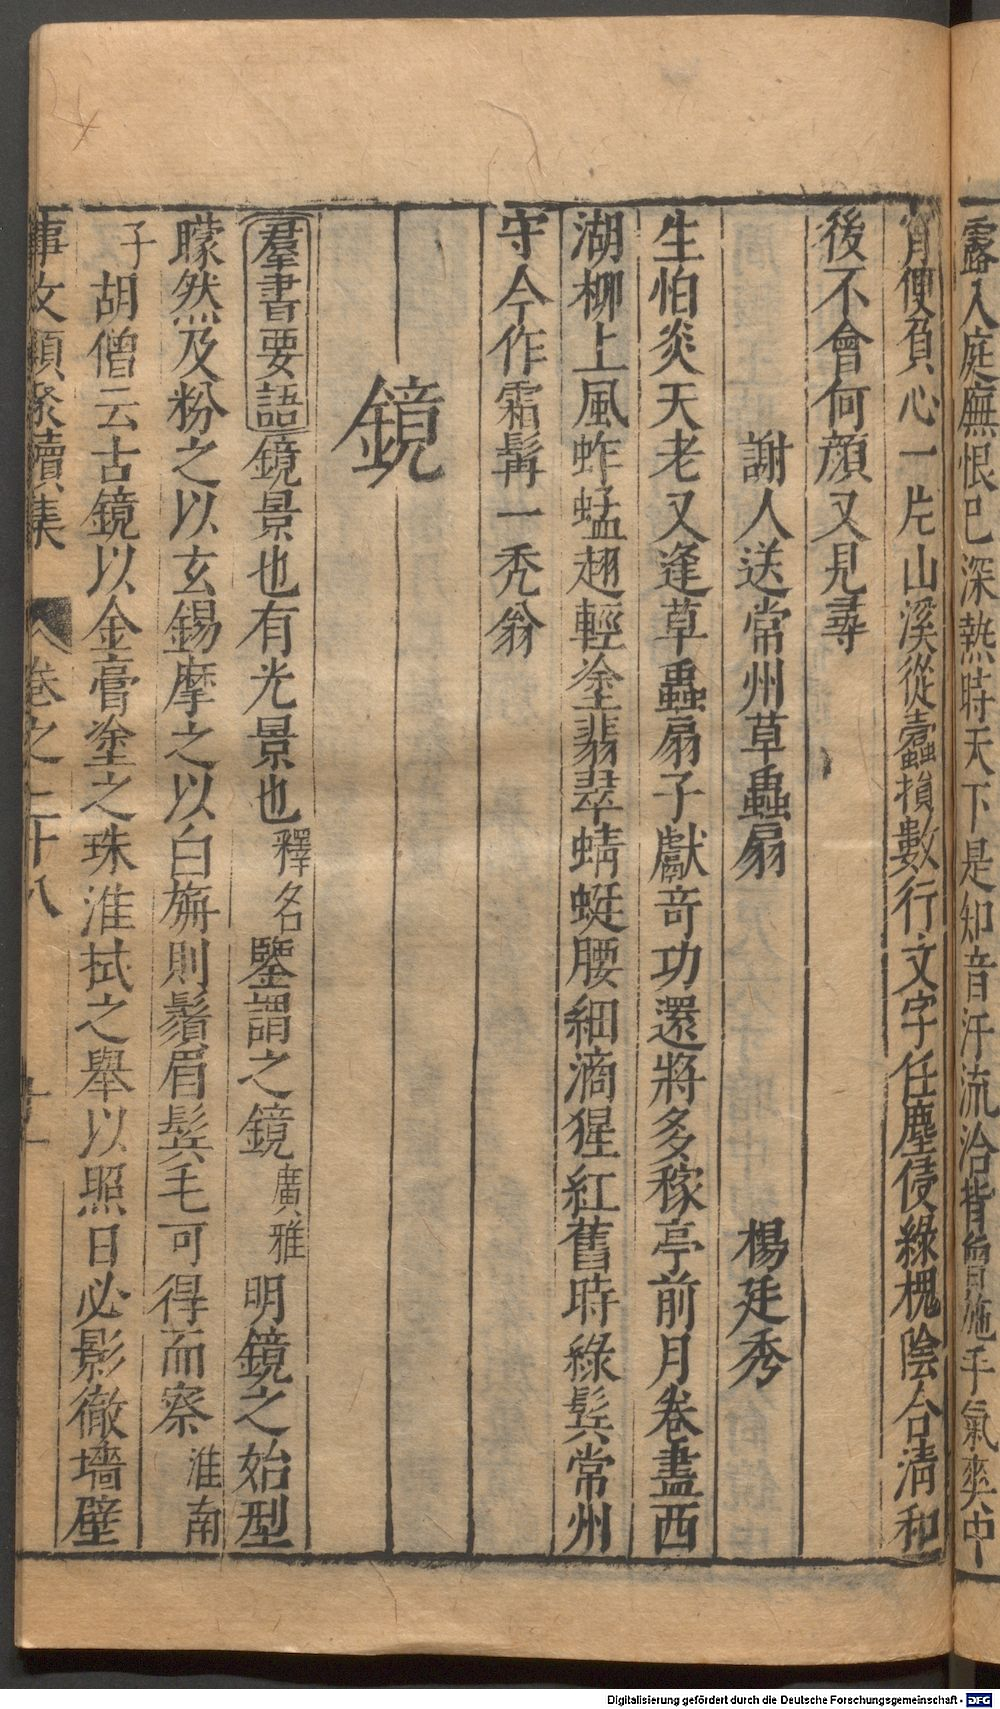 露入庭廡恨已深熱時天下是知音汗流洽背曾施手氣爽中
宵便負心一片山溪從蠹損數行文字任塵侵綠槐陰合清和
後不會何顔又見尋
謝人送常州草蟲扇 楊廷秀
生怕炎天老又逢草蟲扇子獻奇功還將多稼亭前月卷盡西
湖柳上風蚱蜢翅輕塗翡翠蜻蜓腰細滴猩紅舊時綠鬂常州
守今作霜髯一禿翁
鏡
羣書要語鏡景也有光景也釋名鑒謂之鏡廣雅明鏡之始型
矇然及粉之以玄錫摩之以白旃則鬚眉鬂毛可得而察淮南
子胡僧云古鏡以金膏塗之珠淮拭之舉以照日必影徹墻壁
事文類聚續集 卷之二十八
Digitalisierung gefördert durch die Deutsche Forschungsgemeinschaft - DFG